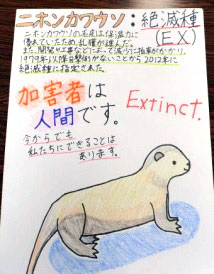 ニホンカワウソ:絶滅種
(EX)
ニホンカワウソの毛皮は保温力に
優れていたため、乱獲が進んだ。
また、開発や工事などによって減少に拍車がかかり、
1979年以降目撃例がないことから2012年に
絶滅種に指定された。
加害者は
人間です。
Extinct.
今からでも
私たちにできることは
あります。